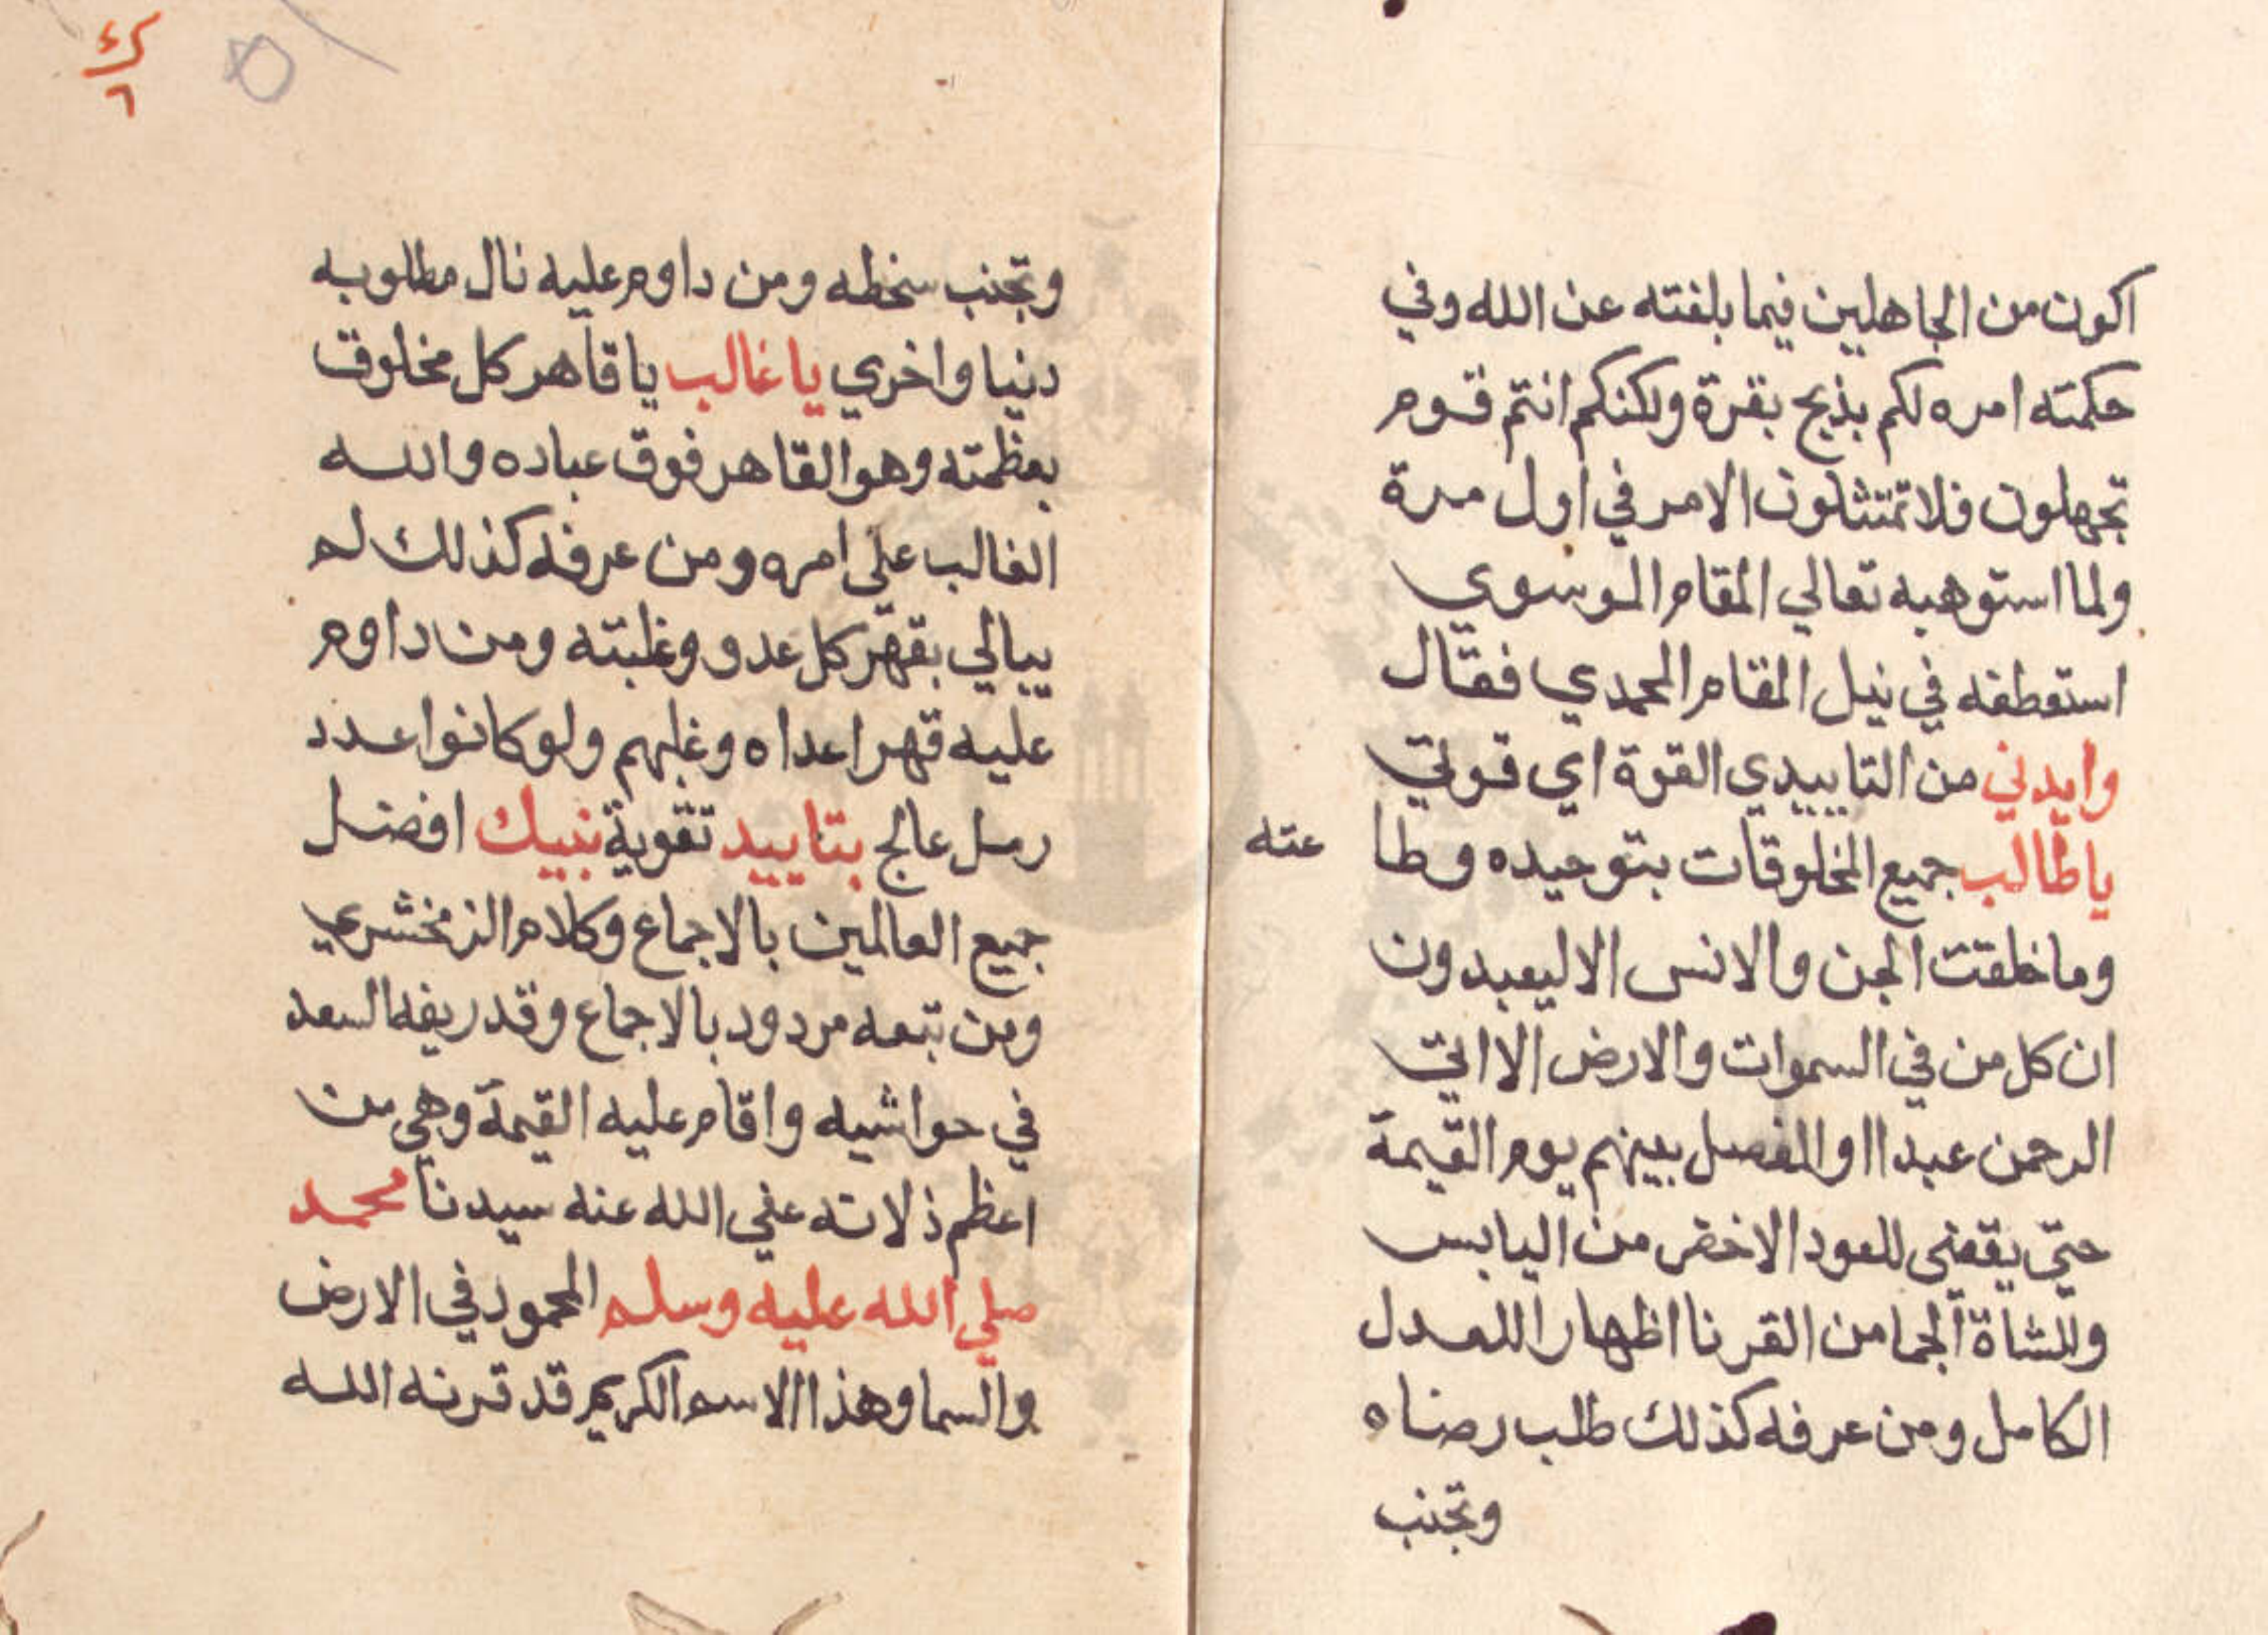 اكون من الجاهلين فيما بلغته عن الله وفي
حكمته امره لكم بذبح بقرة ولكنكم انتم قوم
تجهلون فلا تمتثلون الامر في اول مرة
ولما استوهبه تعالي المقام الموسوي
استعطفه في نيل المقام المحمدي فقال
وايدني من التاييدي القوة اي قوتي
يا طالب جميع المخلوقات بتوحيده وطا عته
وما خلقت الجن والانس الا ليعبدون
ان كل من في السموات والارض الا اتي
الرحمن عبدا او المفصل بينهم يوم القيمة
حتي يقتضي للعود الاخضر من اليابس
وللشاة الجما من القرنا اظهارا للعدل
الكامل ومن عرفه كذلك طلب رضاه
وتجنب
وتجنب سخطه ومن داوم عليه نال مطلوبه
دنيا واخري يا غالب يا قاهر كل مخلوق
بعظمته وهو القاهر فوق عباده والله
الغالب علي امره ومن عرفه كذلك لم
يبالي بقهر كل عدو وغلبته ومن داوم
عليه قهر اعداه وغلبهم ولو كانوا عدد
رمل عالج بتاييد تقوية نبيك افضل
جميع العالمين بالاجماع وكلام الزمخشري
ومن تبعه مردود بالاجماع وقد ريفه السعد
في حواشيه واقام عليه القيمة وهي من
اعظم ذلاته عفي الله عنه سيدنا محمد
صلي الله عليه وسلم المحمود في الارض
والسما وهذا الاسم الكريم قد قرنه الله